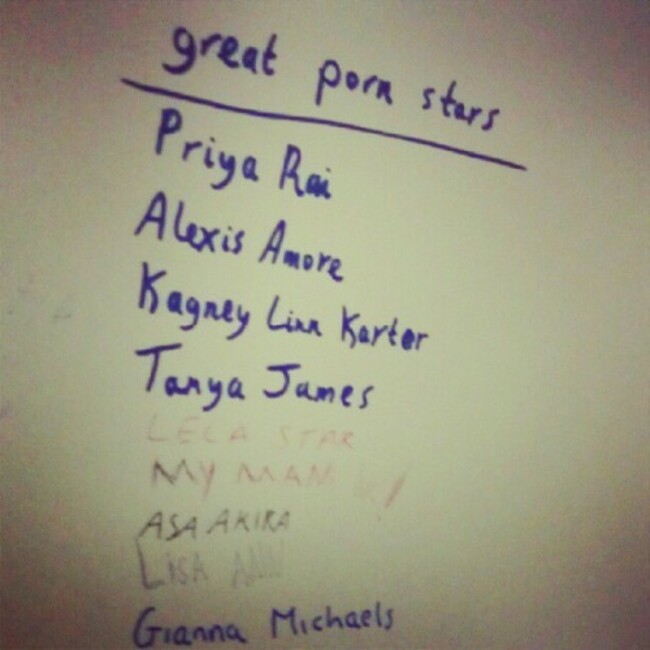 great porn stars
Priya Rai
Alexis Amore
Kagney Linn Karter
Tanya James
LELA STAR
MY MAM
ASA AKIRA
LISA ANN
Gianna Michaels